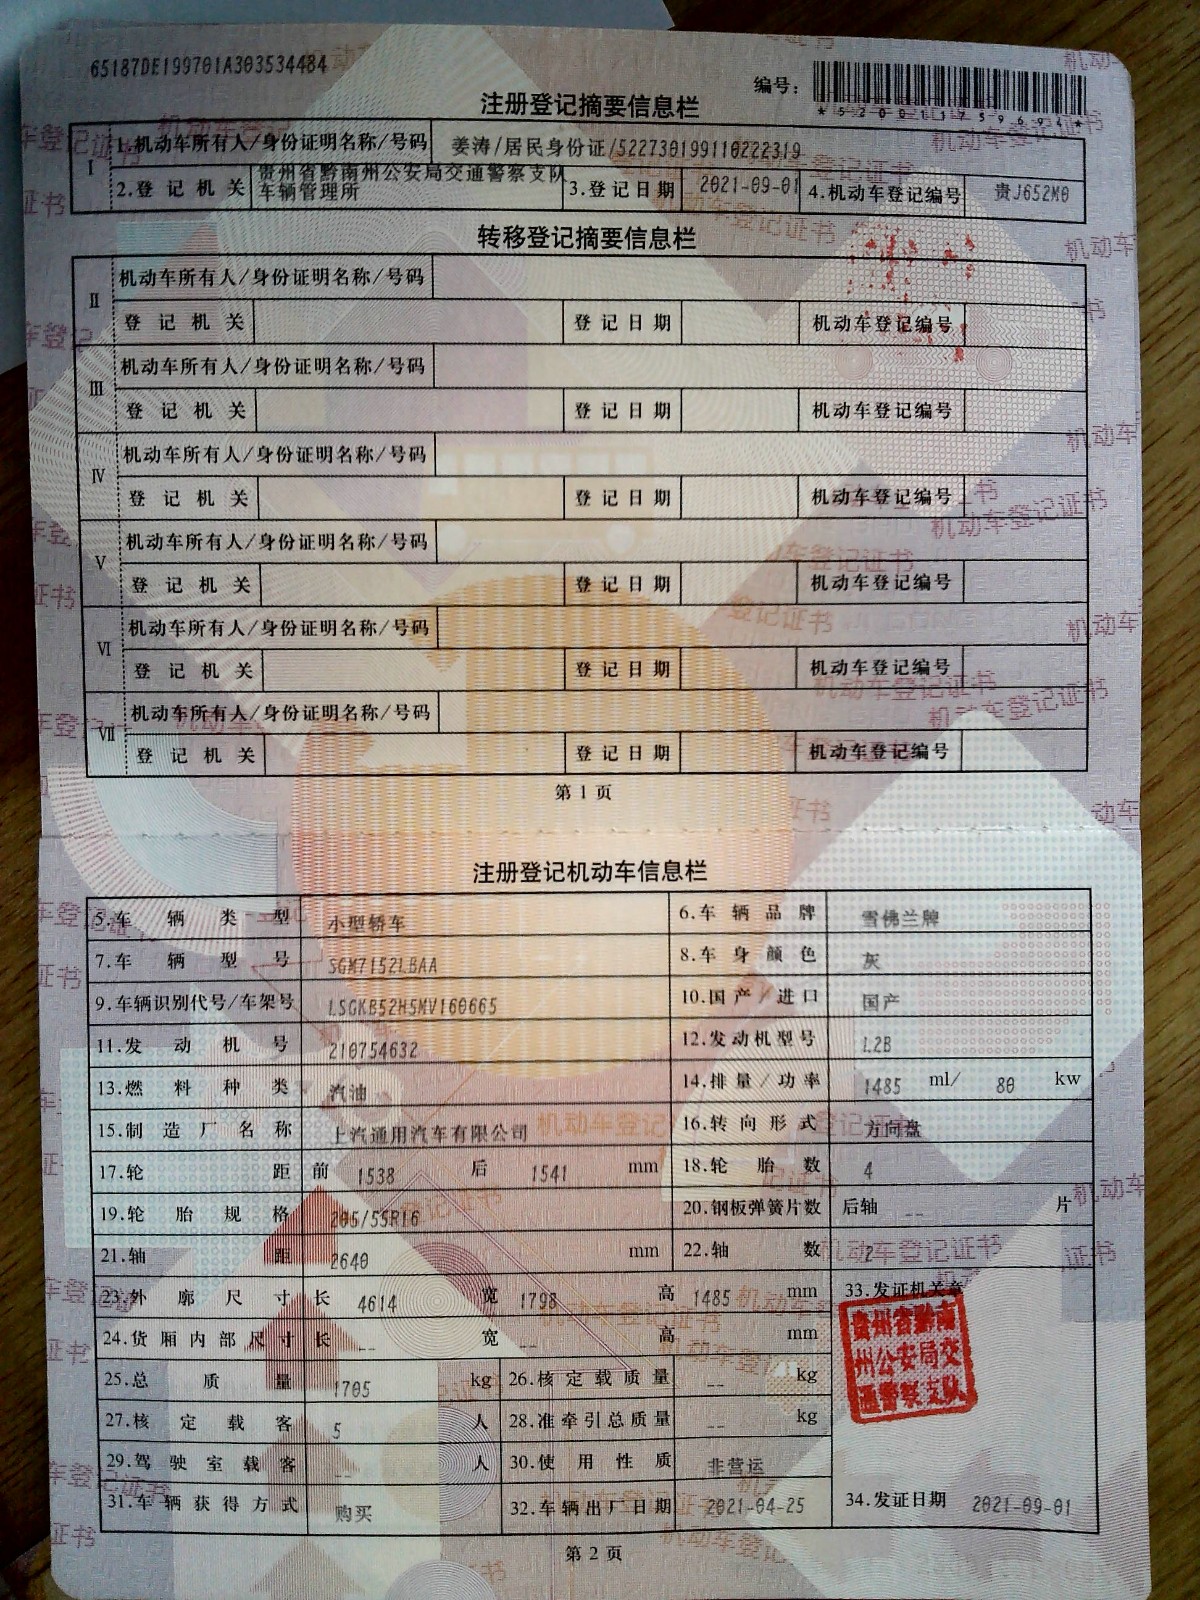 65187DE199701A303534484
编号：
*520011759694*
注册登记摘要信息栏
Ⅰ 1.机动车所有人/身份证明名称/号码 姜涛/居民身份证/522730199110222319
2.登记机关 贵州省黔南州公安局交通警察支队车辆管理所 3.登记日期 2021-09-01 4.机动车登记编号 贵J652M0
转移登记摘要信息栏
Ⅱ 机动车所有人/身份证明名称/号码
登记机关 登记日期 机动车登记编号
Ⅲ 机动车所有人/身份证明名称/号码
登记机关 登记日期 机动车登记编号
Ⅳ 机动车所有人/身份证明名称/号码
登记机关 登记日期 机动车登记编号
Ⅴ 机动车所有人/身份证明名称/号码
登记机关 登记日期 机动车登记编号
Ⅵ 机动车所有人/身份证明名称/号码
登记机关 登记日期 机动车登记编号
Ⅶ 机动车所有人/身份证明名称/号码
登记机关 登记日期 机动车登记编号
第1页
注册登记机动车信息栏
5.车辆类型 小型轿车 6.车辆品牌 雪佛兰牌
7.车辆型号 SGM7152LBAA 8.车身颜色 灰
9.车辆识别代号/车架号 LSGKB52H5MV160665 10.国产/进口 国产
11.发动机号 210754632 12.发动机型号 L2B
13.燃料种类 汽油 14.排量/功率 1485 ml/ 80 kw
15.制造厂名称 上汽通用汽车有限公司 16.转向形式 方向盘
17.轮距 前 1538 后 1541 mm 18.轮胎数 4
19.轮胎规格 205/55R16 20.钢板弹簧片数 后轴 -- 片
21.轴距 2640 mm 22.轴数 2
23.外廓尺寸 长 4614 宽 1798 高 1485 mm 33.发证机关章
24.货厢内部尺寸 长 -- 宽 -- 高 -- mm
贵州省黔南州公安局交通警察支队
25.总质量 1705 kg 26.核定载质量 -- kg
27.核定载客 5 人 28.准牵引总质量 -- kg
29.驾驶室载客 -- 人 30.使用性质 非营运
31.车辆获得方式 购买 32.车辆出厂日期 2021-04-25 34.发证日期 2021-09-01
第2页